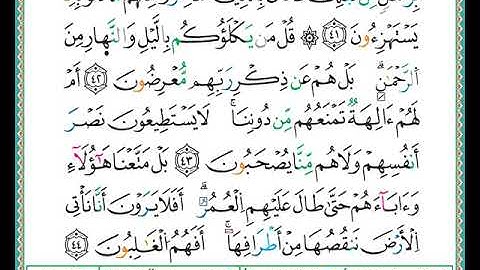 يَسْتَهْزِءُونَ ٤١ ۞ قُلْ مَن يَكْلَؤُكُم بِٱلَّيْلِ وَٱلنَّهَارِ مِنَ
ٱلرَّحْمَٰنِ ۗ بَلْ هُمْ عَن ذِكْرِ رَبِّهِم مُّعْرِضُونَ ٤٢ أَمْ
لَهُمْ ءَالِهَةٌ تَمْنَعُهُم مِّن دُونِنَا ۚ لَا يَسْتَطِيعُونَ نَصْرَ
أَنفُسِهِمْ وَلَا هُم مِّنَّا يُصْحَبُونَ ٤٣ بَلْ مَتَّعْنَا هَٰٓؤُلَآءِ
وَءَابَآءَهُمْ حَتَّىٰ طَالَ عَلَيْهِمُ ٱلْعُمُرُ ۗ أَفَلَا يَرَوْنَ أَنَّا نَأْتِى
ٱلْأَرْضَ نَنقُصُهَا مِنْ أَطْرَافِهَآ ۚ أَفَهُمُ ٱلْغَٰلِبُونَ ٤٤